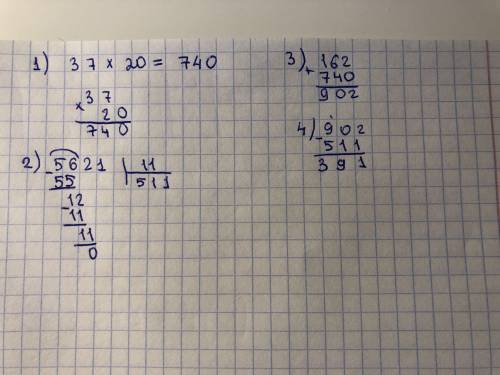 1) 37 × 20 = 740
× 37
20
740
2) - 5621 | 11
55 | 511
- 12
11
11
0
3) + 162
740
902
4) - 902
511
391